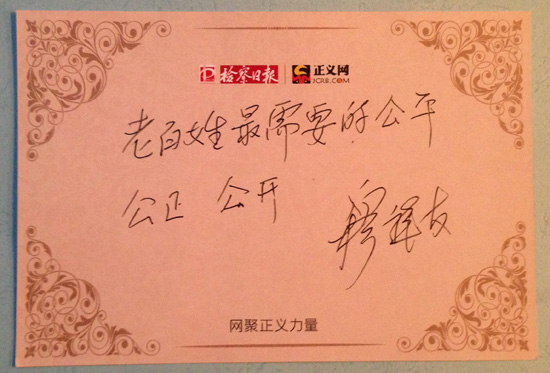 检察日报 正义网
JCRB.COM
老百姓最需要的公平
公正 公开
网聚正义力量